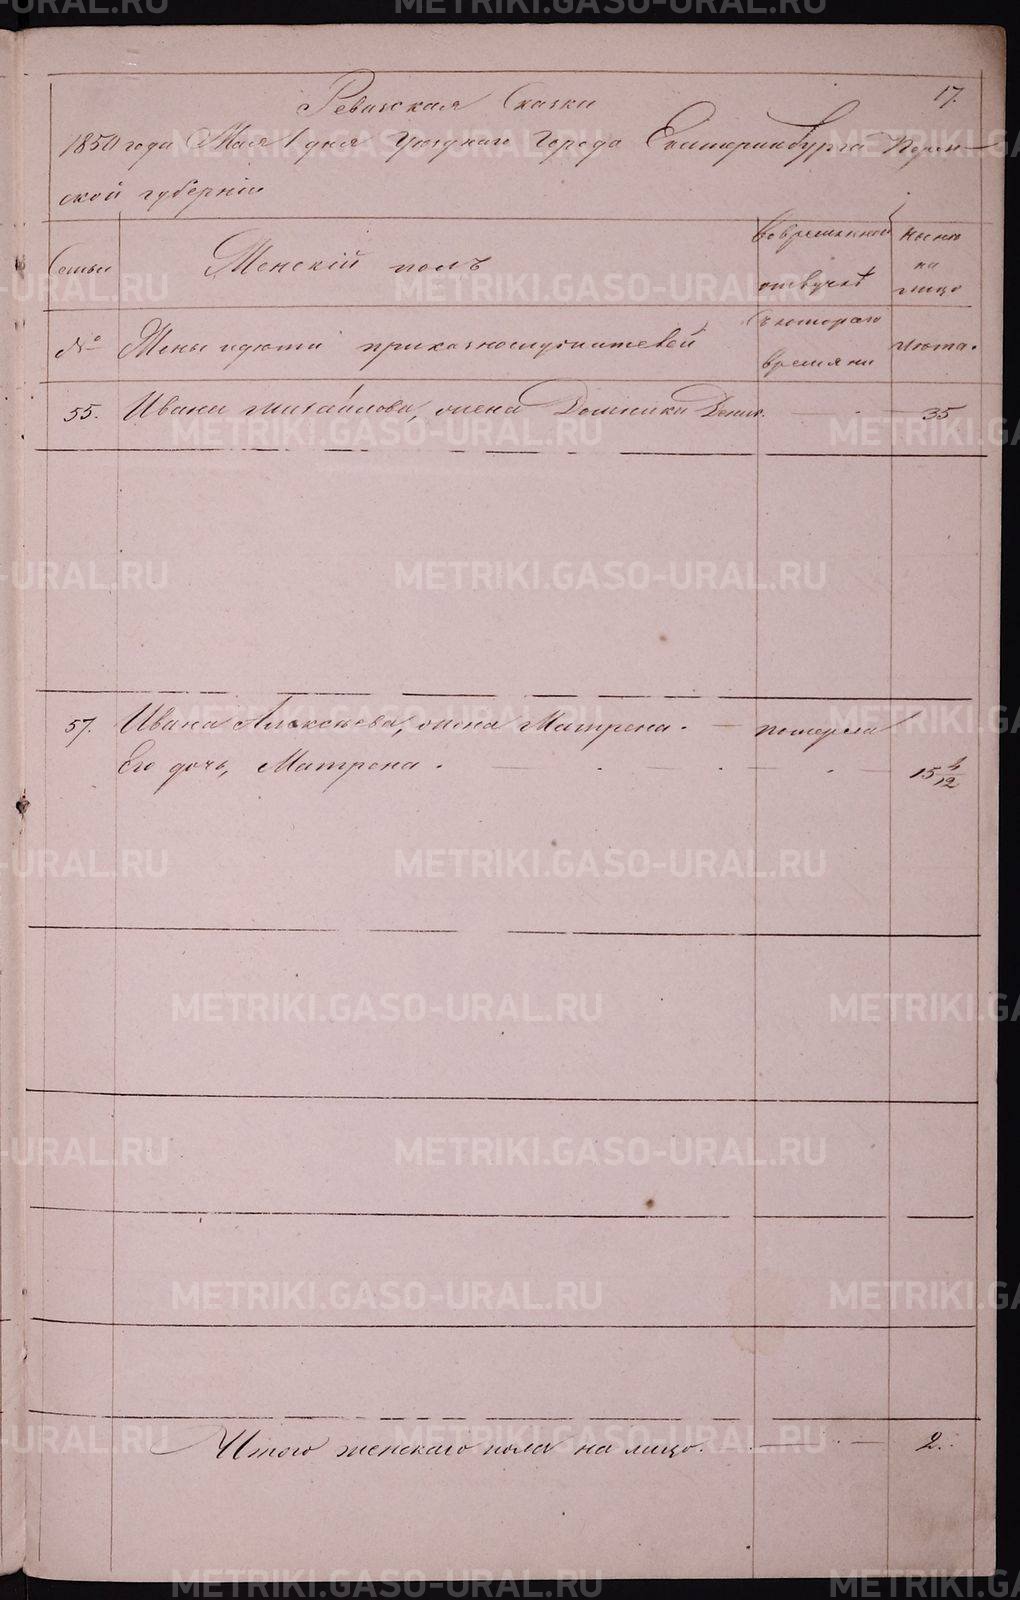 17.
Ревизская Сказка
1850 года Мая 1 дня Уезднаго Города Екатеринбурга Перм-
ской губернiи
Семьи
Женскiй полъ
Во временной
отлучкѣ
Ныне
на
лицо
№
Жены и дети приказнослужителей
Съ котораго
времяни
лета.
55. Ивана Михайлова, жена Домника Денис. 35
57. Ивана Алексѣева, жена Матрена. — померла
Его дочь, Матрена. 15 4/12
Итого женскаго пола на лицо. 2.
METRIKI.GASO-URAL.RU